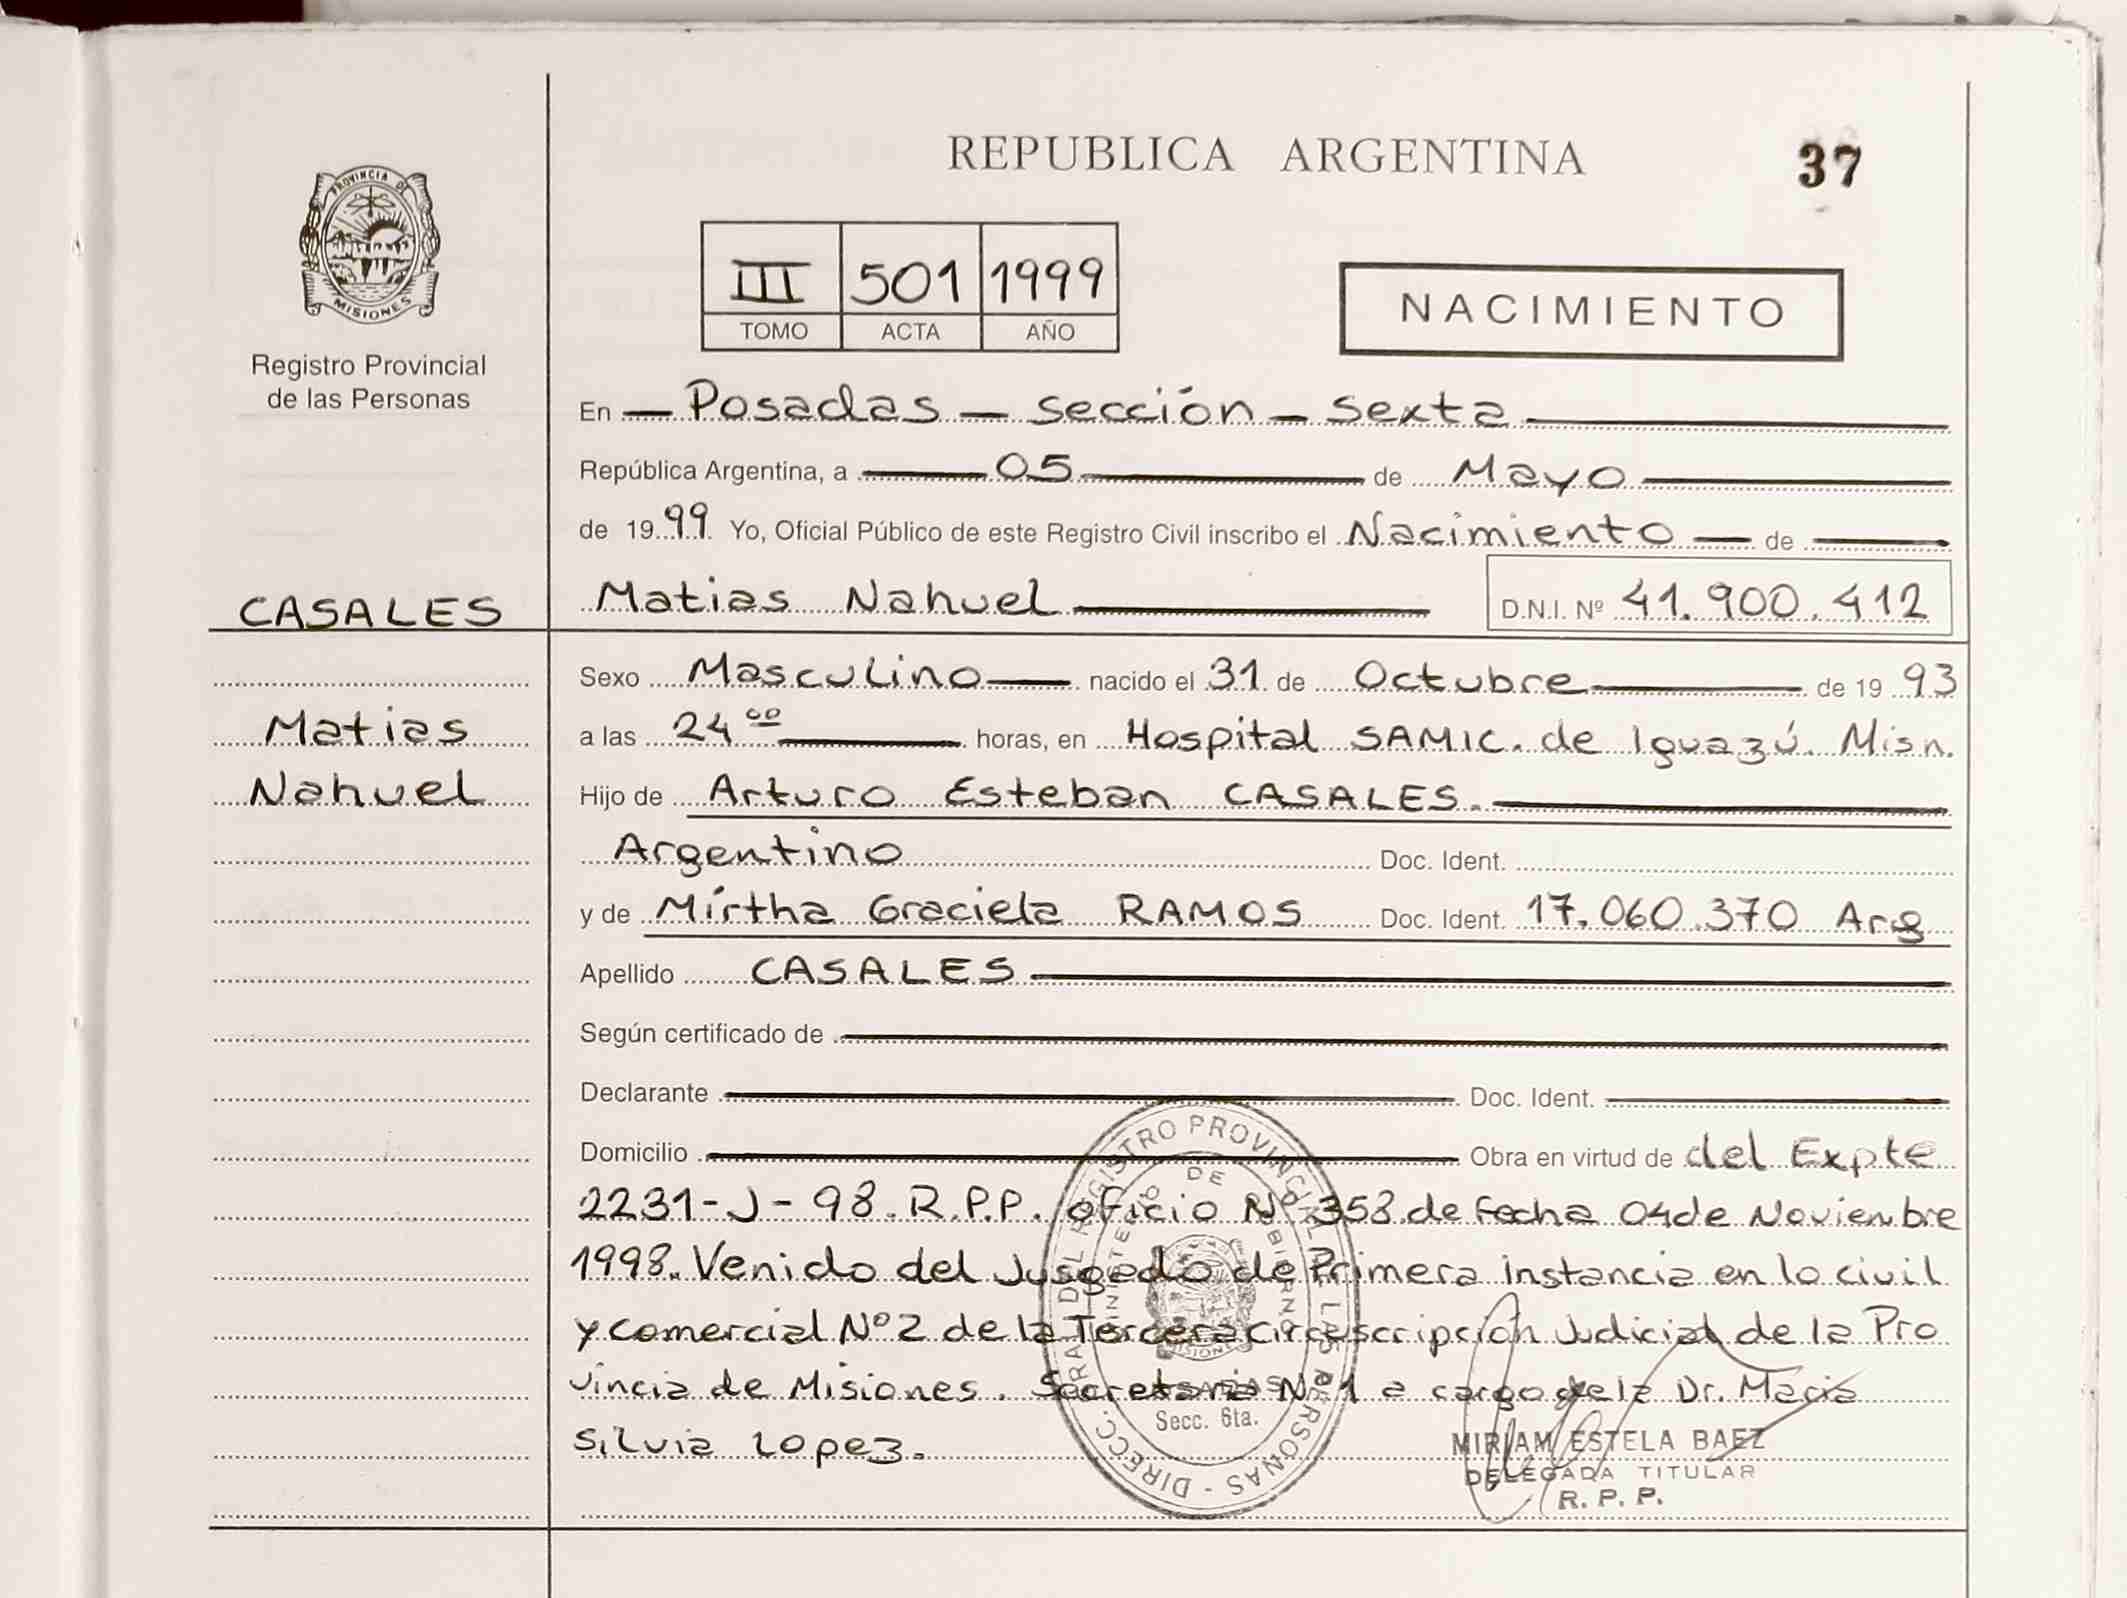 REPUBLICA ARGENTINA
37
PROVINCIA DE
MISIONES
Registro Provincial
de las Personas
III 501 1999
TOMO ACTA AÑO
NACIMIENTO
En Posadas - sección - sexta
República Argentina, a 05 de Mayo
de 1999 Yo, Oficial Público de este Registro Civil inscribo el Nacimiento de
CASALES Matias Nahuel D.N.I. Nº 41.900.412
Sexo Masculino nacido el 31 de Octubre de 1993
Matias
Nahuel
a las 24 00 horas, en Hospital SAMIC. de Iguazú. Misn.
Hijo de Arturo Esteban CASALES.
Argentino Doc. Ident.
y de Mírtha Graciela RAMOS Doc. Ident. 17.060.370 Arg
Apellido CASALES
Según certificado de
Declarante Doc. Ident.
Domicilio Obra en virtud de del Expte
2231-J-98. R.P.P. oficio Nº 353 de fecha 04 de Noviembre
1998. Venido del Jusgado de Primera instancia en lo civil
y comercial Nº 2 de la Tercera circescripción Judicial de la Pro
vincia de Misiones. Secretaria Nº 1 a cargo de la Dr. Maria
Silvia Lopez.
DIRECC. GRAL DEL REGISTRO PROVINCIAL DE LAS PERSONAS -
MINISTERIO DE GOBIERNO
MISIONES
POSADAS
Secc. 6ta.
MIRIAM ESTELA BAEZ
DELEGADA TITULAR
R. P. P.